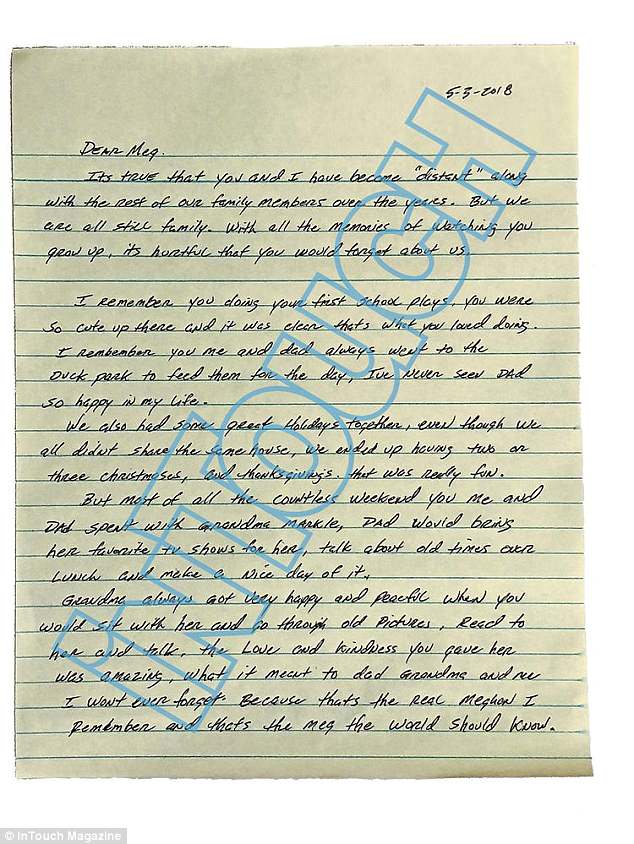 5-3-2018
Dear Meg.
Its true that you and I have become "distant" along
with the rest of our family members over the years. But we
are all still family. With all the memories of watching you
grow up, its hurtful that you would forget about us.
I remember you doing your first school plays, you were
so cute up there and it was clear thats what you loved doing.
I rembember you me and dad always went to the
Duck park to feed them for the day, I've never seen Dad
so happy in my life.
We also had some great Holidays together, even though we
all didnt share the same house, we ended up having two or
three christmases, and thanksgivings. that was really fun.
But most of all the countless weekend you me and
Dad spent with Grandma Markle, Dad would bring
her favorite tv shows for her, talk about old times over
Lunch and make a nice day of it.
Grandma always got very happy and peacful when you
would sit with her and go through old Pictures, Read to
her and talk. the Love and kindness you gave her
was amazing, what it meant to dad Grandma and me
I wont ever forget. Because thats the real Meghan I
Remember and thats the meg the world should know.
INTOUCH
© InTouch Magazine